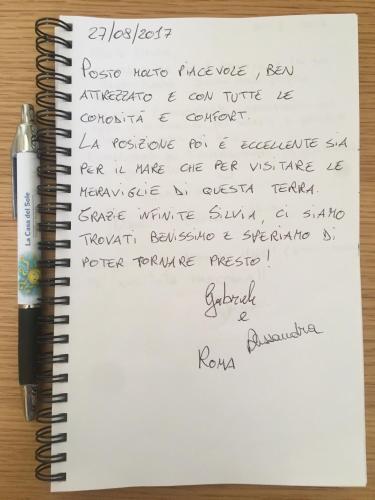 27/08/2017
POSTO MOLTO PIACEVOLE, BEN
ATTREZZATO E CON TUTTE LE
COMODITÀ E COMFORT.
LA POSIZIONE POI È ECCELLENTE SIA
PER IL MARE CHE PER VISITARE LE
MERAVIGLIE DI QUESTA TERRA.
GRAZIE INFINITE SILVIA, CI SIAMO
TROVATI BENISSIMO E SPERIAMO DI
POTER TORNARE PRESTO!
Gabriele
e
Alessandra
ROMA
La Casa del Sole